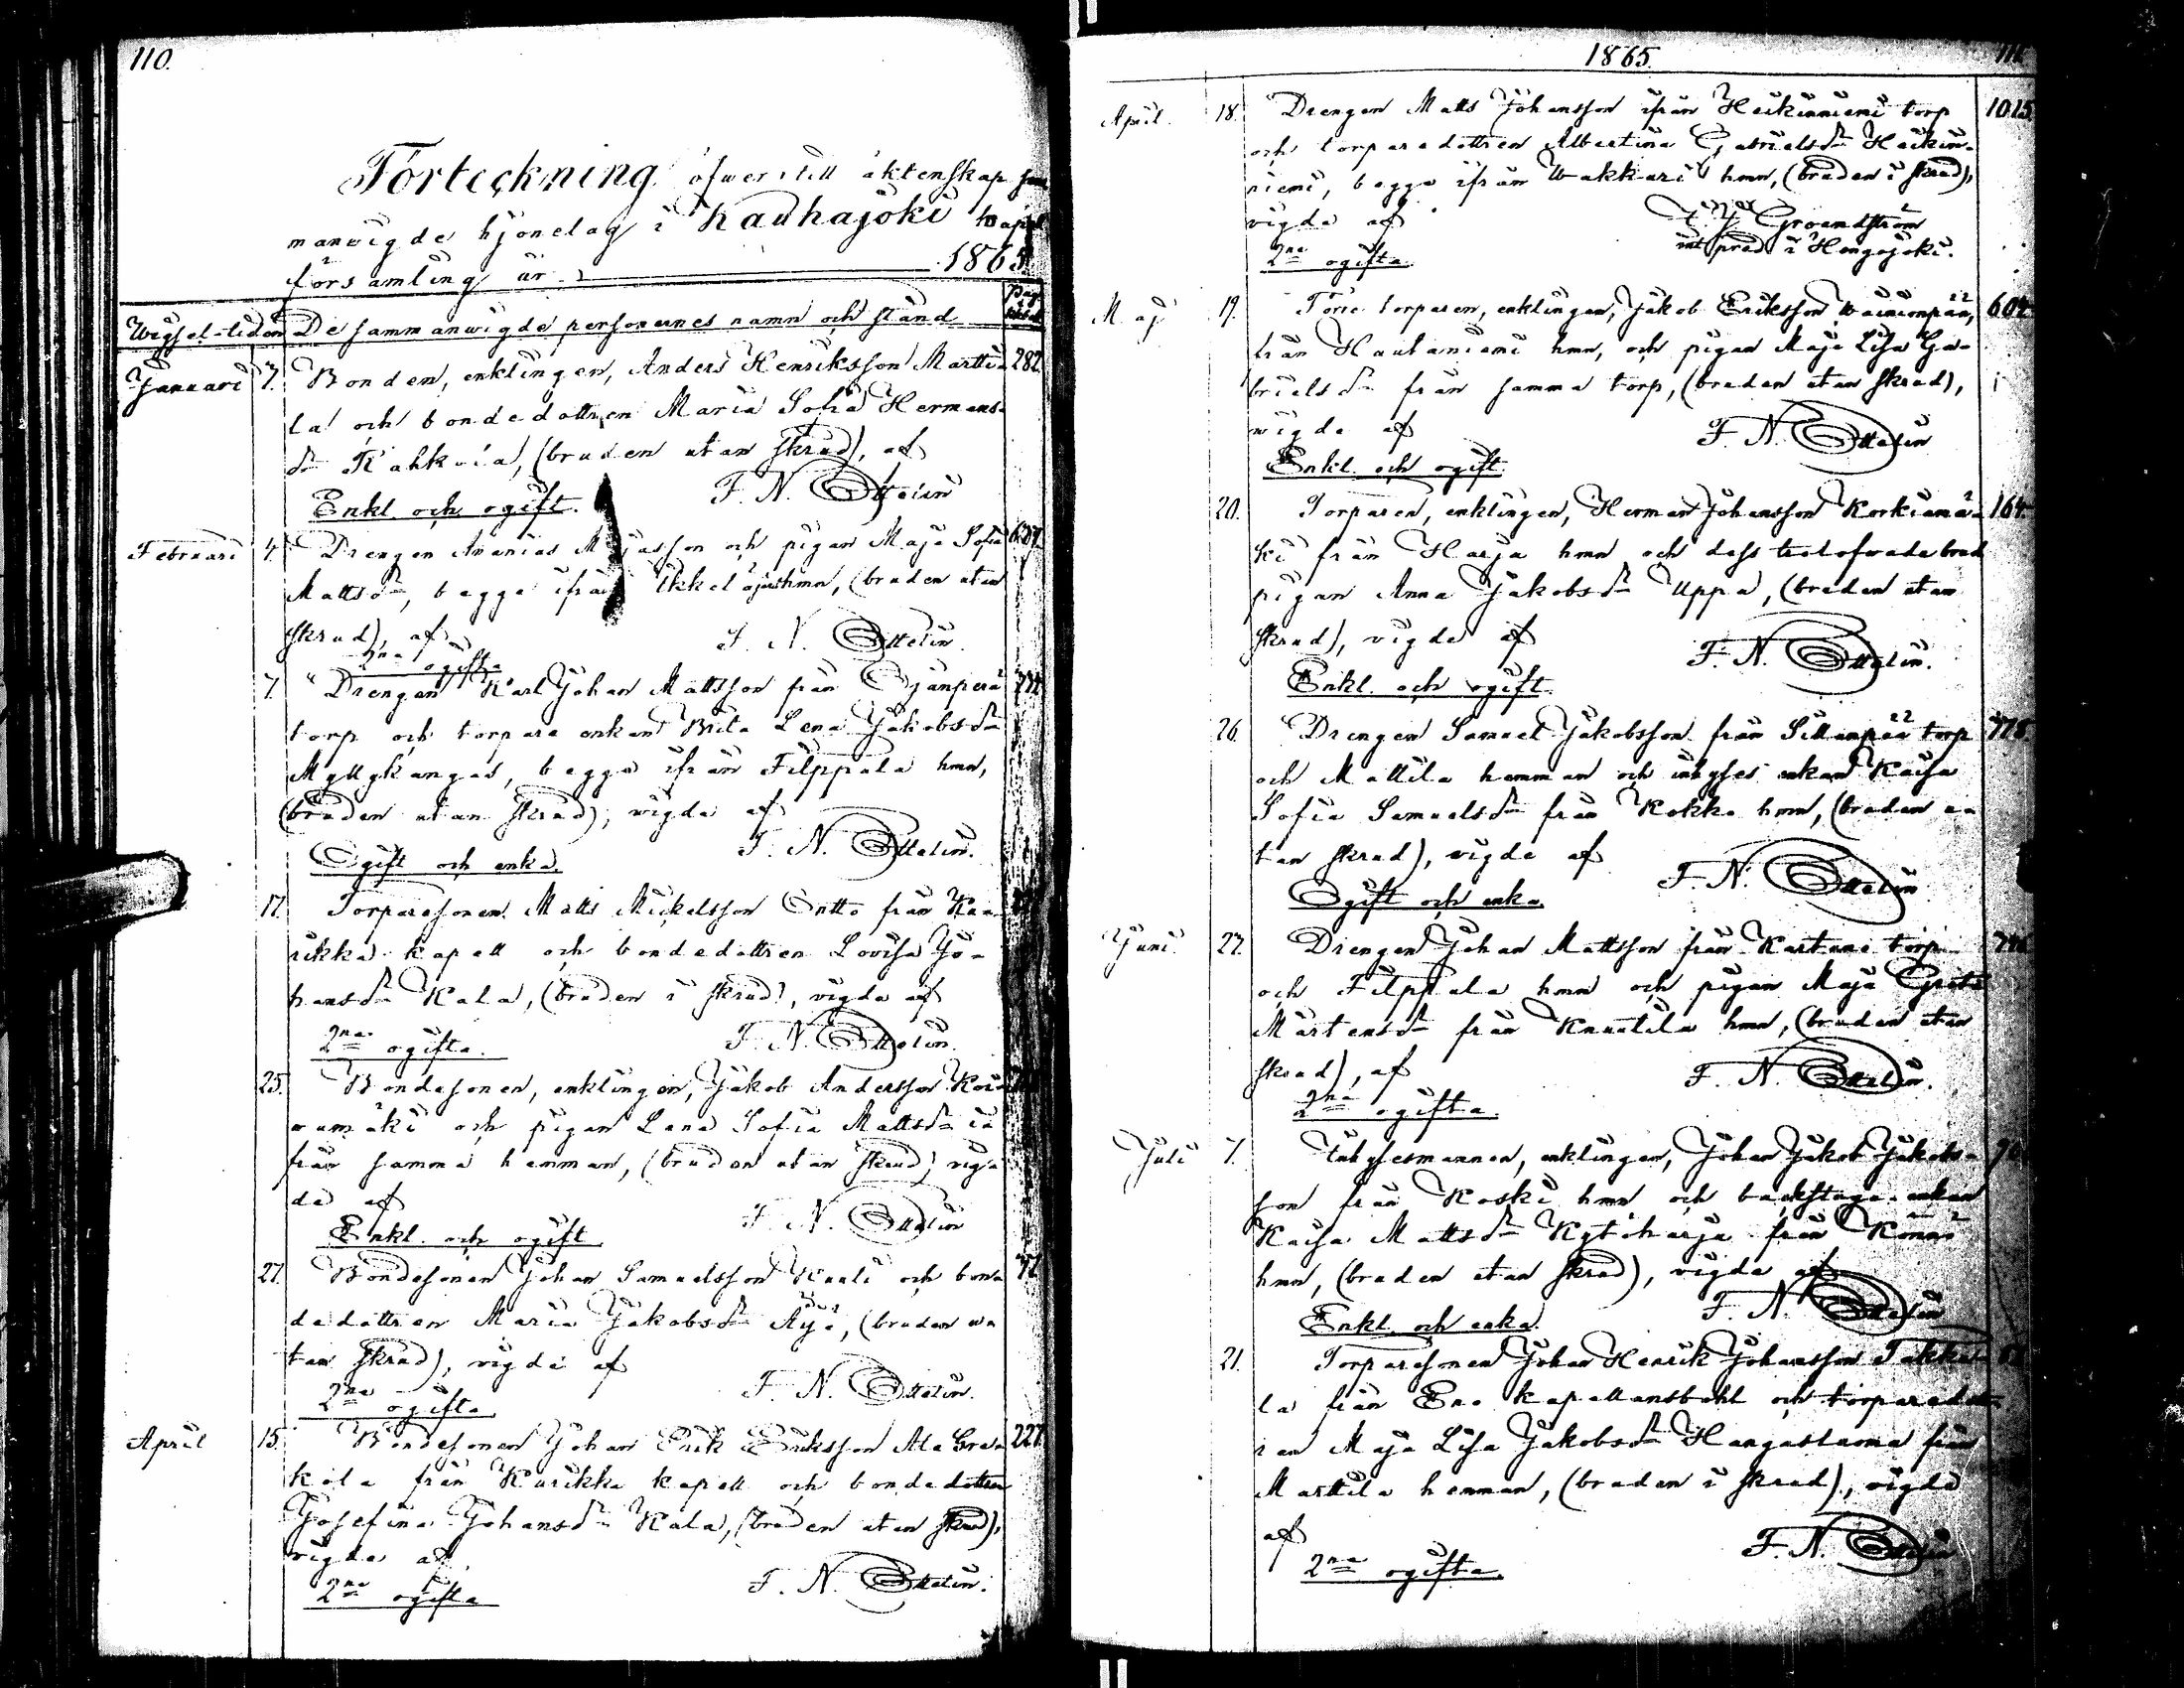 110.
Förteckning öfwer till äktenskap sam
manvigde hjonelag i Kauhajoki kapel
församling år 1865.
Wigsel-tiden De sammanwigde personernes namn och stånd Pag.
Januari 7. Bonden, enklingen, Anders Henriksson Martti- 282.
la och bondedottren Maria Sofia Hermans-
dr Kahkola, (bruden utan skrud), af
Enkl. och ogift. F. N. Ottelin
Februari 4. Drengen Ananias och pigan Maja Sofia 637.
Mattsdr, begge ifrån Ikkeläjärvi hmn, (bruden utan
skrud), af F. N. Ottelin.
2ne ogifta
7. Drengen Karl Johan Mattsson från Ojanperä
torp och torpare enkan Brita Lena Jakobsdr
Myllykangas, begge ifrån Filppula hmn,
(bruden utan skrud), wigde af
Ogift och enka. F. N. Ottelin.
17. Torparesonen Matts Mickelsson Ontto från Ku-
rikka kapell och bondedottren Lovisa Jo-
hansdr Kala, (bruden i skrud), vigde af
2ne ogifta. F. N. Ottelin.
25. Bondesonen, enklingen, Jakob Andersson Koi-
vumäki och pigan Lena Sofia Mattsdr i-
från samma hemman, (bruden utan skrud) vig-
de af
Enkl. och ogift. F. N. Ottelin
27. Bondesonen Johan Samuelsson Knuuti och bon-
dedottren Maria Jakobsdr Äijä, (bruden u-
tan skrud), vigde af
2ne ogifta F. N. Ottelin.
April 15. Bondesonen Johan Erik Eriksson Ala 227.
från Kurikka kapell och bondedottren
Josefina Johansdr Kala, (bruden utan skrud),
vigde af
2ne ogifta F. N. Ottelin.
1865. 111.
April. 18. Drengen Matts Johansson ifrån Heikinniemi torp 1015.
och torparedottren Albertina Gabrielsdr Heikin-
niemi, begge ifrån Wakkuri hmn, (bruden i skrud),
vigde af Groendström
2ne ogifta. pred. i Hongojoki.
Maj 19. Förre torparen, enklingen, Jakob Eriksson Wäinionpää, 604.
från Hautaniemi hmn, och pigan Maja Lisa Ga-
brielsdr från samma torp, (bruden utan skrud),
wigde af F. N. Ottelin
Enkl. och ogift.
20. Torparen, enklingen, Herman Johansson Korkiamä- 164.
ki från Harja hmn och dess trolofwade brud
pigan Anna Jakobsdr Uppa, (bruden utan
skrud), vigde af F. N. Ottelin.
Enkl. och ogift.
26. Drengen Samuel Jakobsson från Sillanpää torp 778.
och Mattila hemman och inhyses enkan Kaisa
Sofia Samuelsdr från Kokko hmn, (bruden u-
tan skrud), vigde af F. N. Ottelin
Ogift och enka.
Juni. 27. Drengen Johan Mattsson från torp
och Filppula hmn och pigan Maja Greta
Mårtensdr från Knuutila hmn, (bruden utan
skrud), af F. N. Ottelin.
2ne ogifta.
Juli 7. Inhysesmannen, enklingen, Johan Jakob Jakobs-
son från Koski hmn och backstuge-enkan
Kaisa Mattsdr Kytöharja från Könnö
hmn, (bruden utan skrud), vigde af
Enkl. och enka. F. N. Ottelin
21. Torparesonen Johan Henrik Johansson
la från Ero kapellansbohl och torparedott-
ren Maja Lisa Jakobsdr Hangasluoma från
Marttila hemman, (bruden i skrud), vigde
af F. N. Ottelin
2ne ogifta.